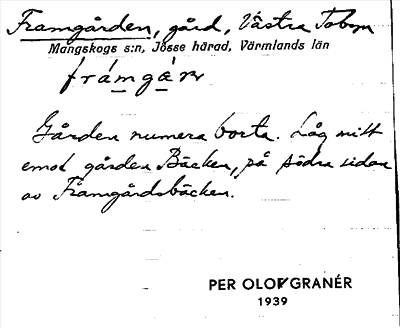 Framgården, gård, Västra Tobyn
Mangskogs s:n, Jösse härad, Värmlands län
frámgàrn
Gården numera borta. Låg mitt
emot gården Bäcken, på södra sidan
av Framgårdsbäcken.
PER OLOF GRANÉR
1939